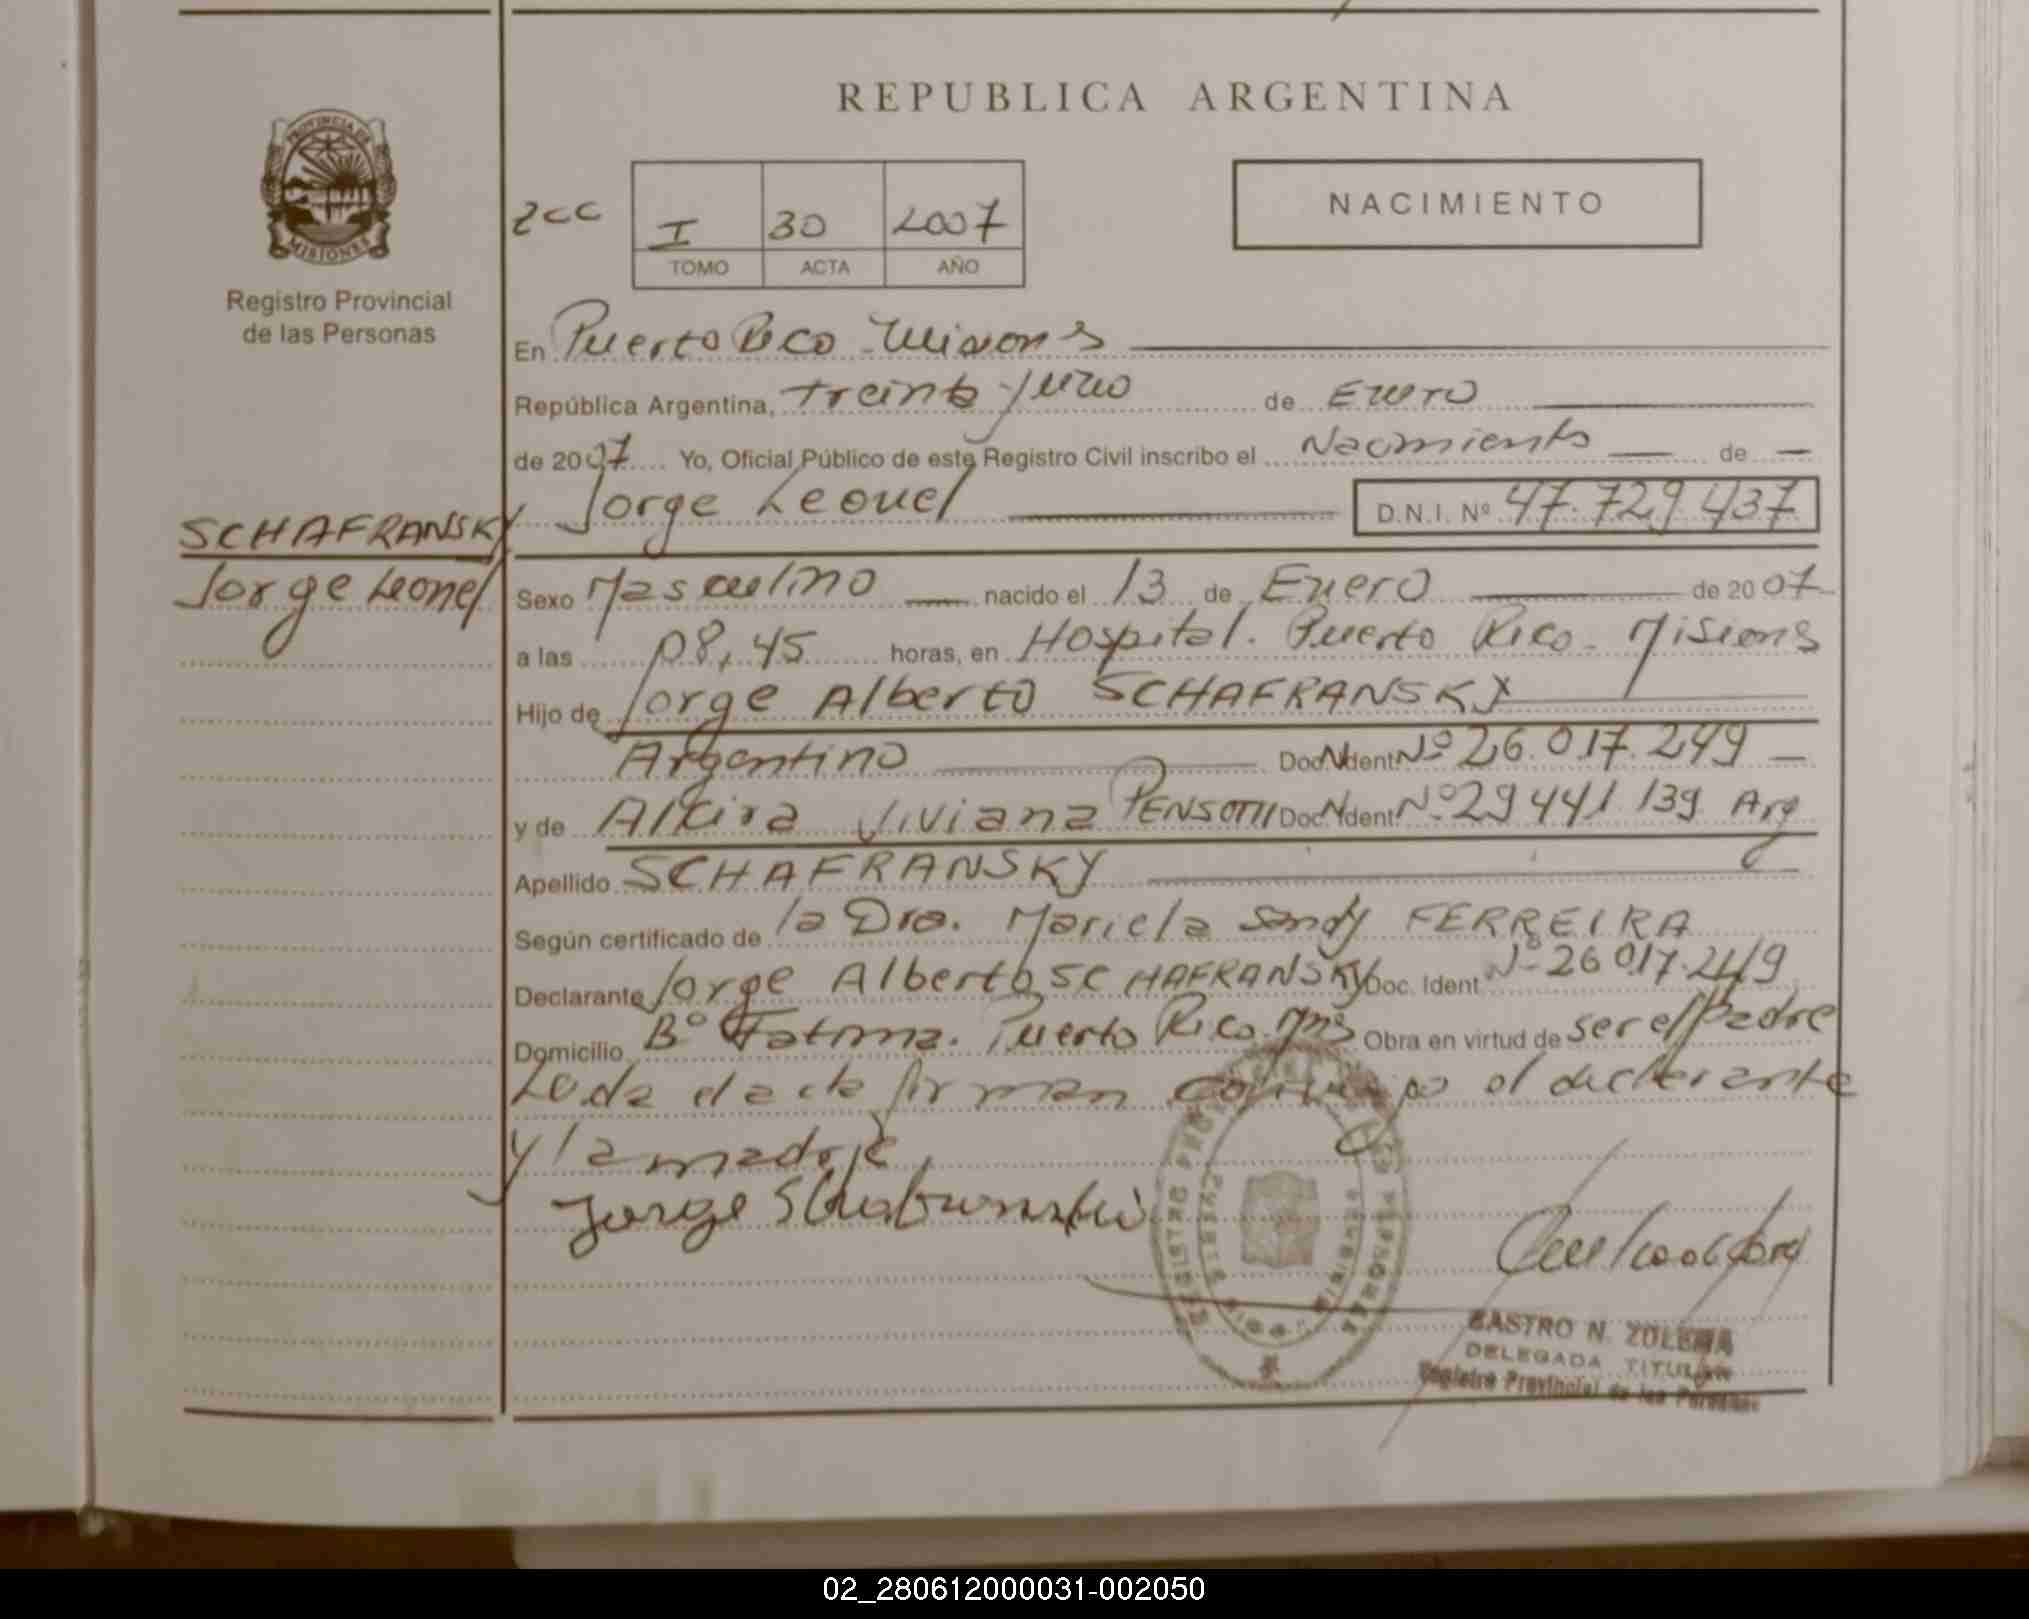 REPUBLICA ARGENTINA
PROVINCIA DE
MISIONES
Registro Provincial
de las Personas
2cc
I 30 2007
TOMO ACTA AÑO
NACIMIENTO
En Puerto Rico Misiones
República Argentina, treinta y uno de Enero
de 2007 Yo, Oficial Público de este Registro Civil inscribo el Nacimiento de
Jorge Leonel D.N.I. Nº 47.729.437
SCHAFRANSKY
Jorge Leonel
Sexo Masculino nacido el 13 de Enero de 2007
a las 08,45 horas, en Hospital. Puerto Rico. Misiones
Hijo de Jorge Alberto SCHAFRANSKY
Argentino Doc. Ident Nº 26.017.249
y de Alcira Viviana PENSOTTI Doc. Ident Nº 29441139 Arg
Apellido SCHAFRANSKY
Según certificado de la Dra. Mariela Sandy FERREIRA
Declarante Jorge Alberto SCHAFRANSKY Doc. Ident Nº 26017.249
Domicilio Bº Fatima. Puerto Rico. Mns Obra en virtud de ser el padre
Leida el acta firman conmigo el declarante
y la madre
CASTRO N. ZULEMA
DELEGADA TITULAR
Registro Provincial de las Personas
02_280612000031-002050